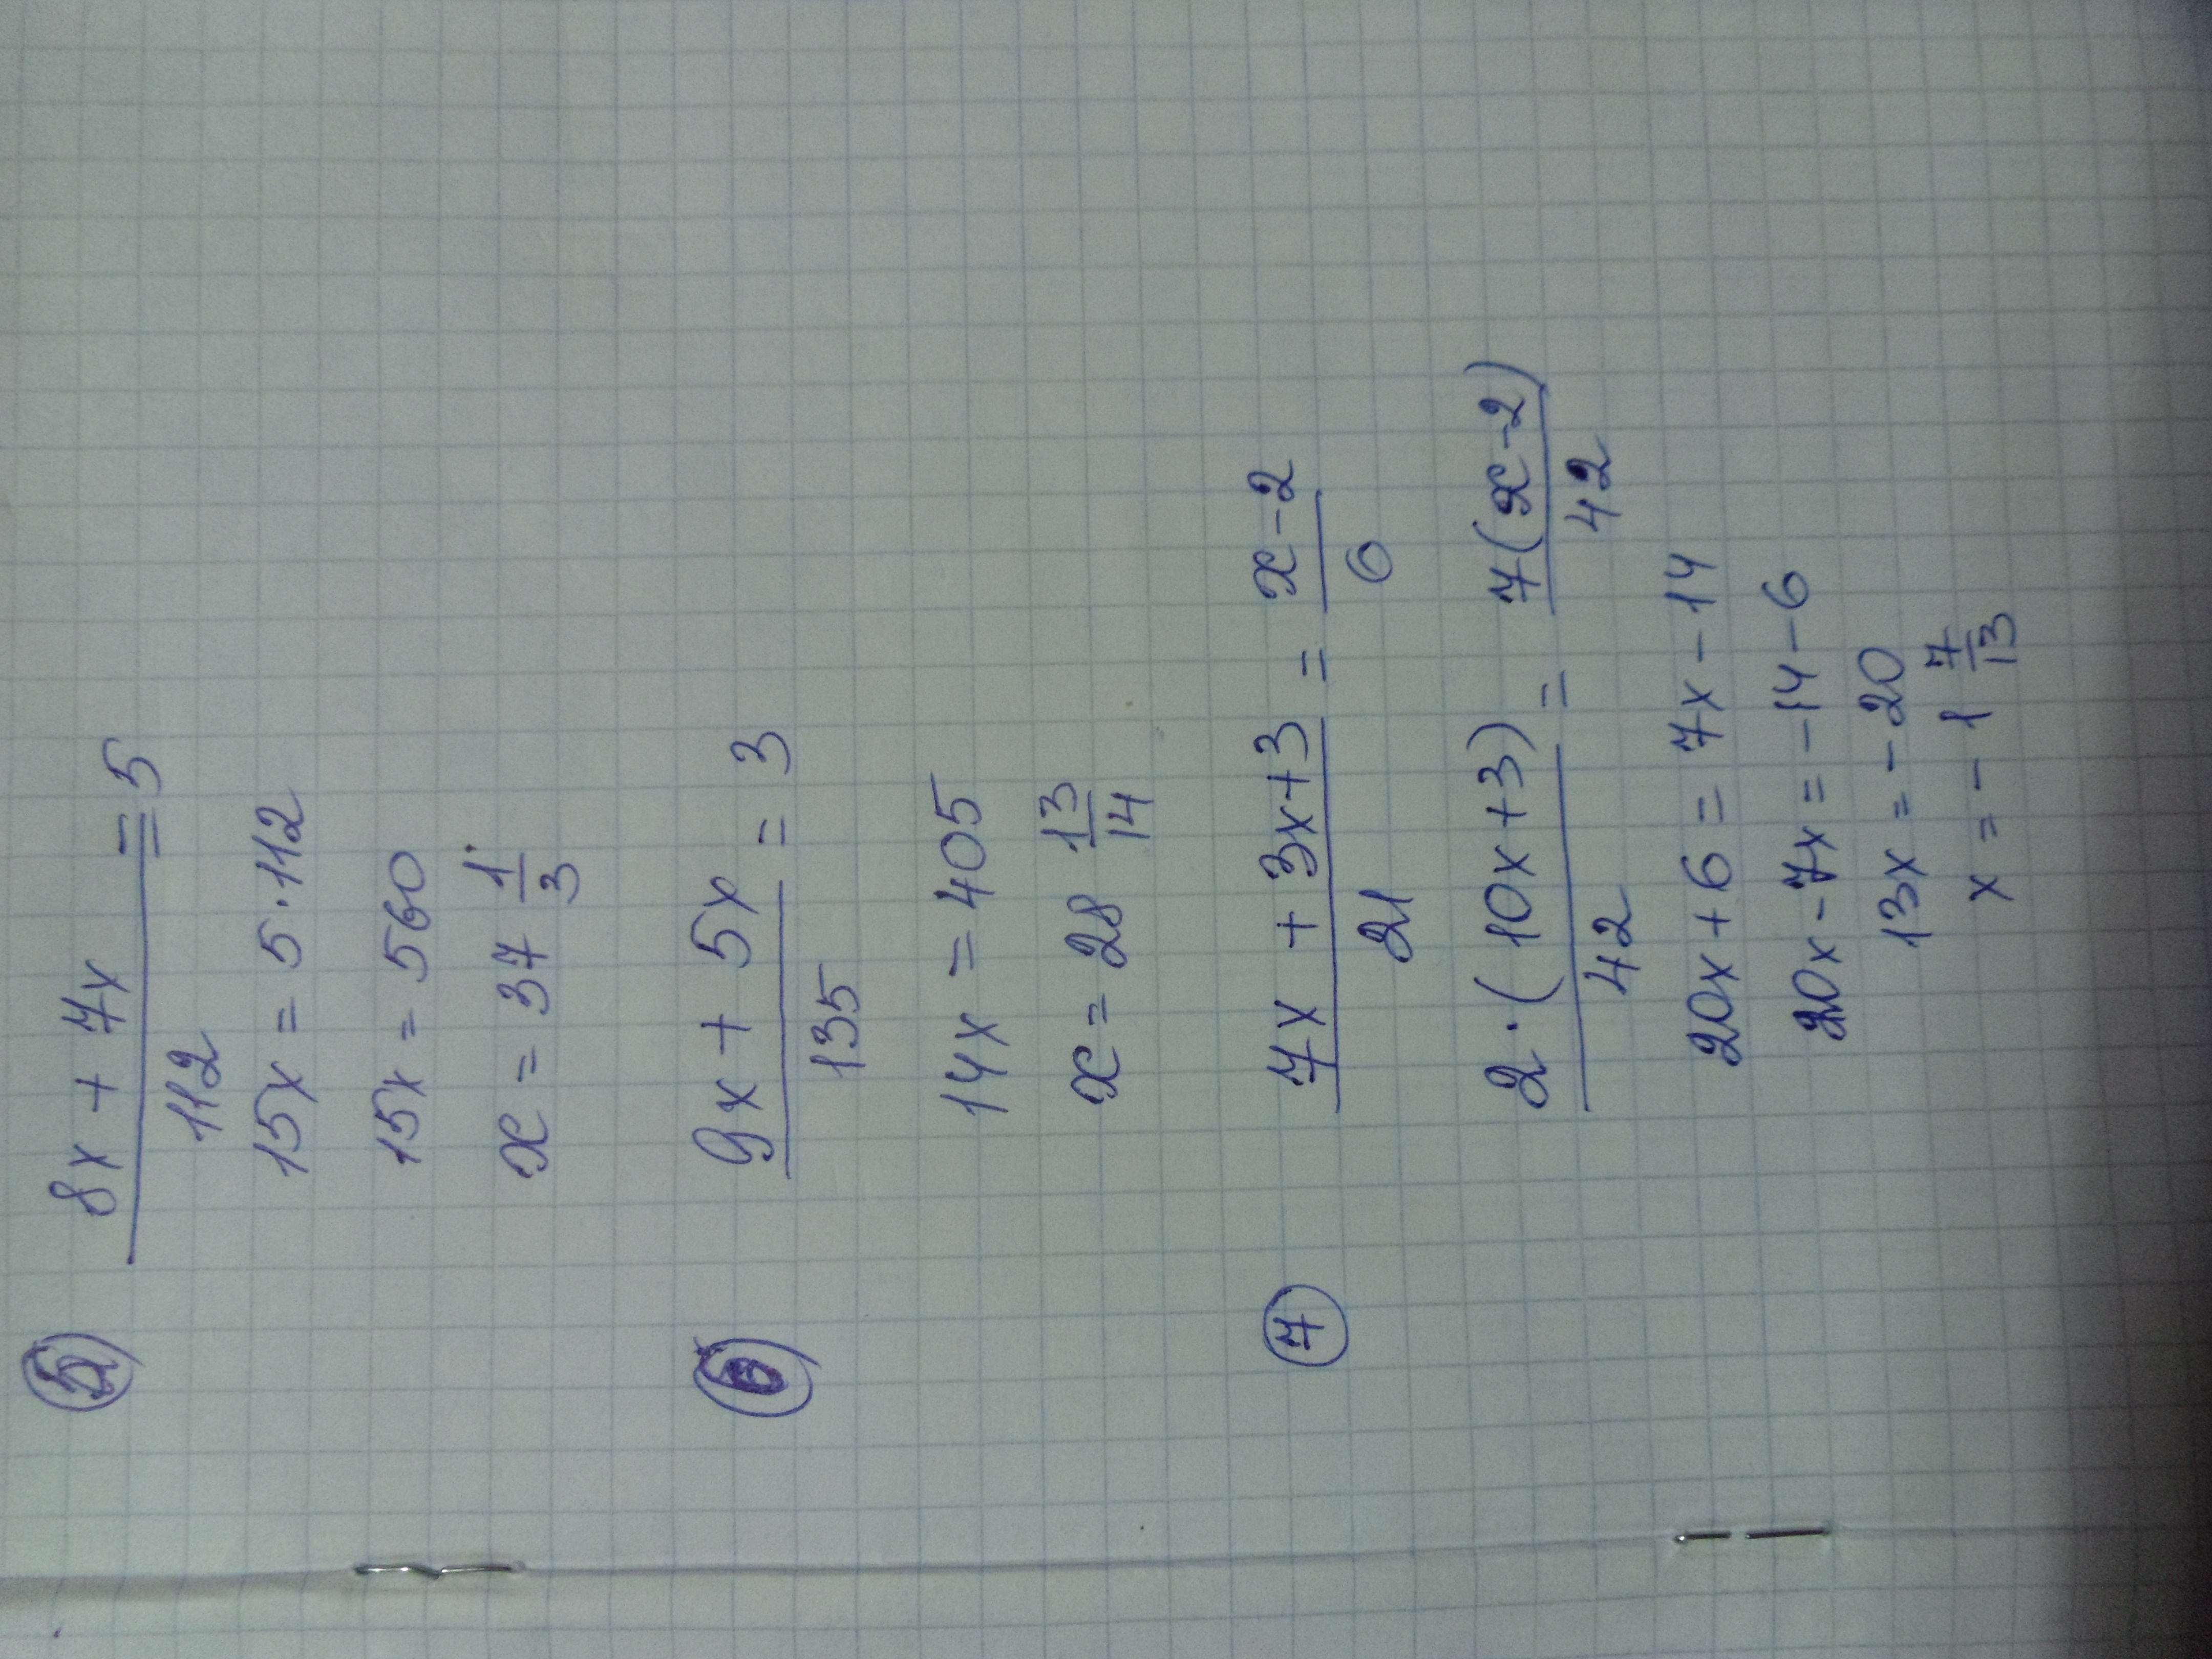 5 (8x + 7x)/112 = 5
15x = 5·112
15x = 560
x = 37 1/3
6 (9x + 5x)/135 = 3
14x = 405
x = 28 13/14
7 (7x + 3x+3)/21 = (x-2)/6
2·(10x+3)/42 = 7(x-2)/42
20x+6 = 7x-14
20x-7x = -14-6
13x = -20
x = -1 7/13